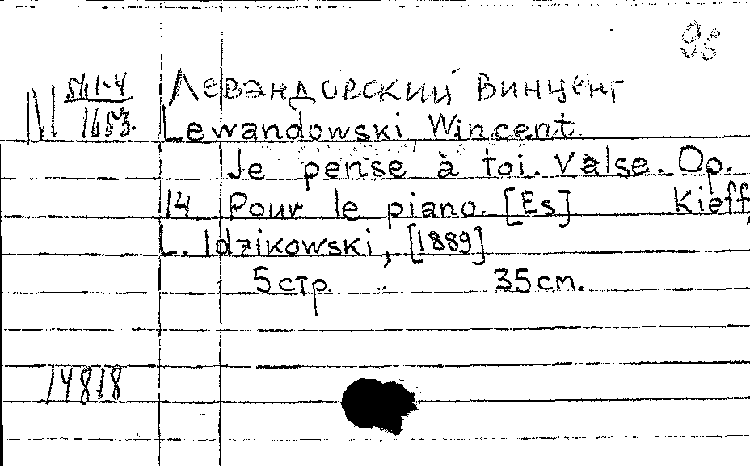 98
М 541-4
1653.
Левэндовский Винцент
Lewandowski Wincent.
Je pense à toi. Valse. Op.
14 Pour le piano. [Es] Kieff,
L. Idzikowski, [1889]
5 стр. 35 cm.
14818